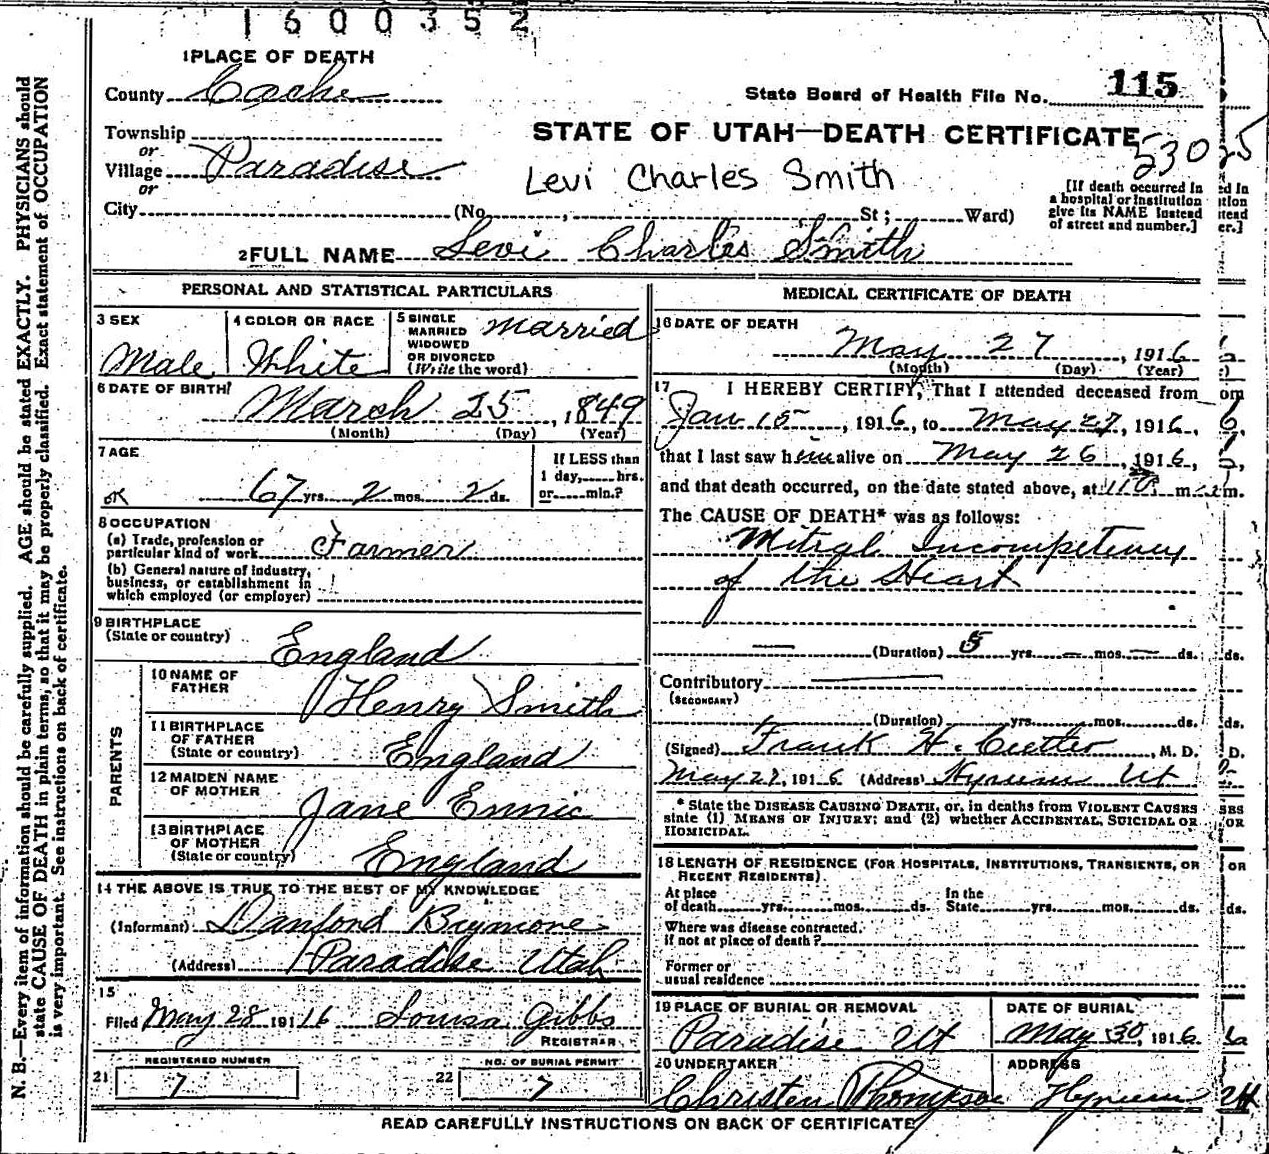 1600352
1 PLACE OF DEATH
County Cache
State Board of Health File No. 115
Township
or
Village Paradise
or
City (No. , St; Ward)
STATE OF UTAH—DEATH CERTIFICATE
53025
Levi Charles Smith
[If death occurred in
a hospital or institution
give its NAME instead
of street and number.]
2 FULL NAME Levi Charles Smith
PERSONAL AND STATISTICAL PARTICULARS
3 SEX
Male
4 COLOR OR RACE
White
5 SINGLE
MARRIED
WIDOWED
OR DIVORCED
(Write the word)
Married
6 DATE OF BIRTH
March 25, 1849
(Month) (Day) (Year)
7 AGE
OK 67 yrs. 2 mos. 2 ds.
If LESS than
1 day, hrs.
or min.?
8 OCCUPATION
(a) Trade, profession or
particular kind of work Farmer
(b) General nature of industry,
business, or establishment in
which employed (or employer)
9 BIRTHPLACE
(State or country)
England
PARENTS
10 NAME OF
FATHER
Henry Smith
11 BIRTHPLACE
OF FATHER
(State or country)
England
12 MAIDEN NAME
OF MOTHER
Jane
13 BIRTHPLACE
OF MOTHER
(State or country)
England
14 THE ABOVE IS TRUE TO THE BEST OF MY KNOWLEDGE
(Informant) Danford
(Address) Paradise Utah
15
Filed May 28 19116 Louisa Gibbs
REGISTRAR
REGISTERED NUMBER
21 7
NO. OF BURIAL PERMIT
22 7
MEDICAL CERTIFICATE OF DEATH
16 DATE OF DEATH
May 27, 1916
(Month) (Day) (Year)
17 I HEREBY CERTIFY, That I attended deceased from
Jan 15, 1916, to May 27, 1916,
that I last saw him alive on May 26, 1916,
and that death occurred, on the date stated above, at m.
The CAUSE OF DEATH* was as follows:
Mitral Incompetency
of the Heart
(Duration) 5 yrs. — mos. — ds.
Contributory
(SECONDARY)
(Duration) yrs. mos. ds.
(Signed) Frank H. , M. D.
May 1916 (Address) Hyrum Ut
* State the DISEASE CAUSING DEATH, or, in deaths from VIOLENT CAUSES
state (1) MEANS OF INJURY; and (2) whether ACCIDENTAL, SUICIDAL OR
HOMICIDAL.
18 LENGTH OF RESIDENCE (FOR HOSPITALS, INSTITUTIONS, TRANSIENTS, OR
RECENT RESIDENTS).
At place
of death yrs. mos. ds.
In the
State yrs. mos. ds.
Where was disease contracted.
if not at place of death?
Former or
usual residence
19 PLACE OF BURIAL OR REMOVAL
Paradise Ut
DATE OF BURIAL
May 30, 1916
20 UNDERTAKER
Christen Thompson
ADDRESS
Hyrum Ut
READ CAREFULLY INSTRUCTIONS ON BACK OF CERTIFICATE
N. B.—Every item of information should be carefully supplied. AGE should be stated EXACTLY. PHYSICIANS should
state CAUSE OF DEATH in plain terms, so that it may be properly classified. Exact statement of OCCUPATION
is very important. See instructions on back of certificate.